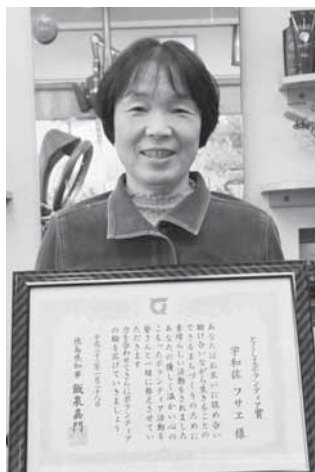 とくしまボランティア賞
宇和佐 フサエ 様
あなたはお互いに認め合い
助け合いながら生きることの
できるまちづくりのために
素晴らしい活動をされました
あなたの優しく温かい心の
こもったボランティア活動を
皆さんと一緒に称えさせてい
ただきます
力を合わせてさらにボランティア
の輪を広げていきましょう
平成二十三年一月二十八日
徳島県知事 飯泉嘉門